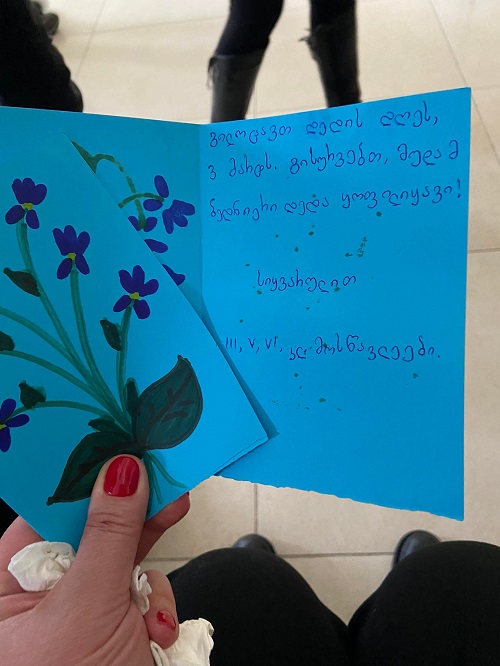 გილოცავთ დედის დღეს,
3 მარტს. გისურვებთ, მუდამ
ბედნიერი დედა ყოფილიყავი!
სიყვარულით
III, V, VI, კლ მოსწავლეები.